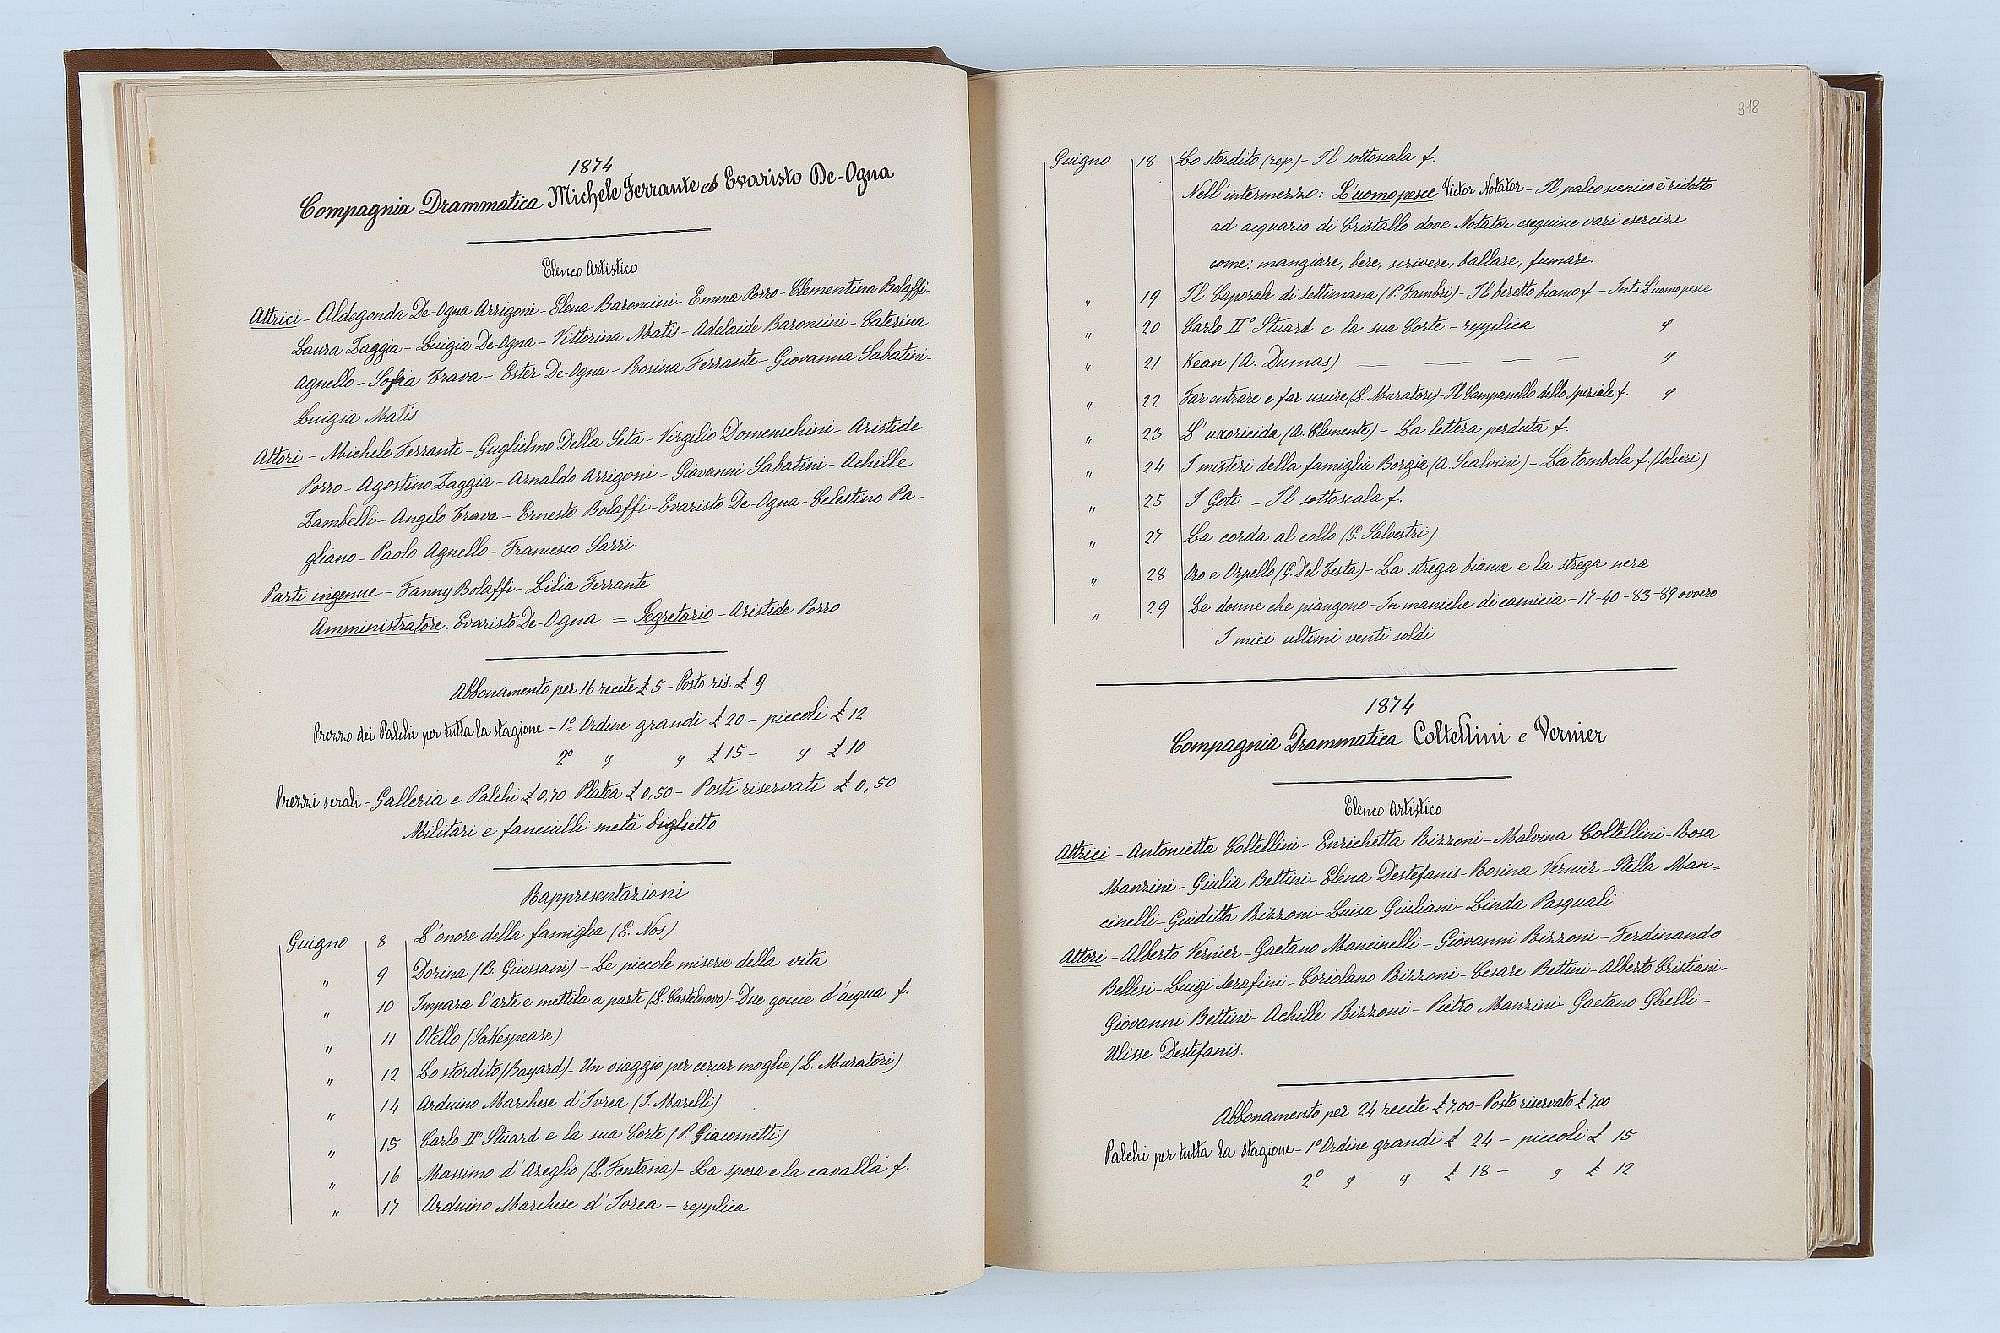 1874
Compagnia Drammatica Michele Ferrante ed Evaristo De-Ogna
Elenco Artistico
Attrici - Aldegonda De-Ogna Arrigoni - Elena Baroncini - Emma Porro - Clementina Bolaffi-
Laura Zaggia - Luigia De-Ogna - Vittorina Matis - Adelaide Baroncini - Caterina
Agnello - Sofia Trava - Ester De-Ogna - Rosina Ferrante - Giovanna Sabatini-
Luigia Matis
Attori - Michele Ferrante - Guglielmo Della Seta - Virgilio Domenichini - Aristide
Porro - Agostino Zaggia - Arnaldo Arrigoni - Giovanni Sabatini - Achille
Zambelli - Angelo Trava - Ernesto Bolaffi - Evaristo De-Ogna - Celestino Pa-
gliano - Paolo Agnello - Francesco Sarri
Parti ingenue - Fanny Bolaffi - Lilia Ferrante
Amministratore. Evaristo De-Ogna = Segretario - Aristide Porro
Abbonamento per 16 recite £ 5 - Posto ris. £ 9
Prezzo dei Palchi per tutta la stagione - 1º Ordine grandi £ 20 - piccoli £ 12
2º " " £ 15 - " £ 10
Prezzi serali - Galleria e Palchi £ 0,70 Platea £ 0,50 - Posti riservati £ 0,50
Militari e fanciulli metà biglietto
Rappresentazioni
Giugno 8 L'onore della famiglia (E. Nos)
" 9 Dorina (B. Giussani) - Le piccole miserie della vita
" 10 Impara l'arte e mettila a parte (L. Castelnovo) - Due goccie d'acqua f.
" 11 Otello (Sakespeare)
" 12 Lo stordito (Bayard) - Un viaggio per cercar moglie (L. Muratori)
" 14 Arduino Marchese d'Ivrea (S. Morelli)
" 15 Carlo IIº Stuard e la sua Corte (P. Giacometti)
" 16 Massimo d'Azeglio (L. Fontana) - La sposa e la cavalla f.
" 17 Arduino Marchese d'Ivrea - repplica
318
Giugno 18 Lo stordito (rep) - Il sottoscala f.
Nell'intermezzo: L'uomo pesce Victor Notator - Il palco scenico è ridotto
ad acquario di Cristallo dove Notator eseguisce vari esercizi
come: mangiare, bere, scrivere, ballare, fumare.
" 19 Il Caporale di settimana (P. Fambri) - Il beretto bianco f - Int: L'uomo pesce
" 20 Carlo IIº Stuard e la sua Corte - repplica "
" 21 Kean (A. Dumas) — — — "
" 22 Far entrare e far uscire (L. Muratori) - Il Campanello dello speziale f. "
" 23 L'uxoricida (A. Clemente) - La lettera perduta f.
" 24 I misteri della famiglia Borgia (A. Scalvini) - La tombola f. (Uslieri)
" 25 I Goti - Il sottoscala f.
" 27 La corda al collo (G. Salvestri)
" 28 Oro e Orpello (G. Del Testa) - La strega bianca e la strega nera
" 29 Le donne che piangono - In maniche di camicia - 17-40-83-89 ovvero
I miei ultimi venti soldi
1874
Compagnia Drammatica Coltellini e Vernier
Elenco Artistico
Attrici - Antonietta Coltellini - Enrichetta Bizzoni - Malvina Coltellini - Rosa
Manzini - Giulia Bettini - Elena Destefanis - Rosina Vernier - Stella Man-
cinelli - Giuditta Bizzoni - Luisa Giuliani - Linda Pasquali
Attori - Alberto Vernier - Gaetano Mancinelli - Giovanni Bizzoni - Ferdinando
Bellesi - Luigi Serafini - Coriolano Bizzoni - Cesare Bettini - Alberto Cristiani-
Giovanni Bettini - Achille Bizzoni - Pietro Manzini - Gaetano Ghelli -
Ulisse Destefanis.
Abbonamento per 24 recite £ 7.00 - Posto riservato £ 7.00
Palchi per tutta la stagione - 1º Ordine grandi £ 24 - piccoli £ 15
2º " " £ 18 - " £ 12